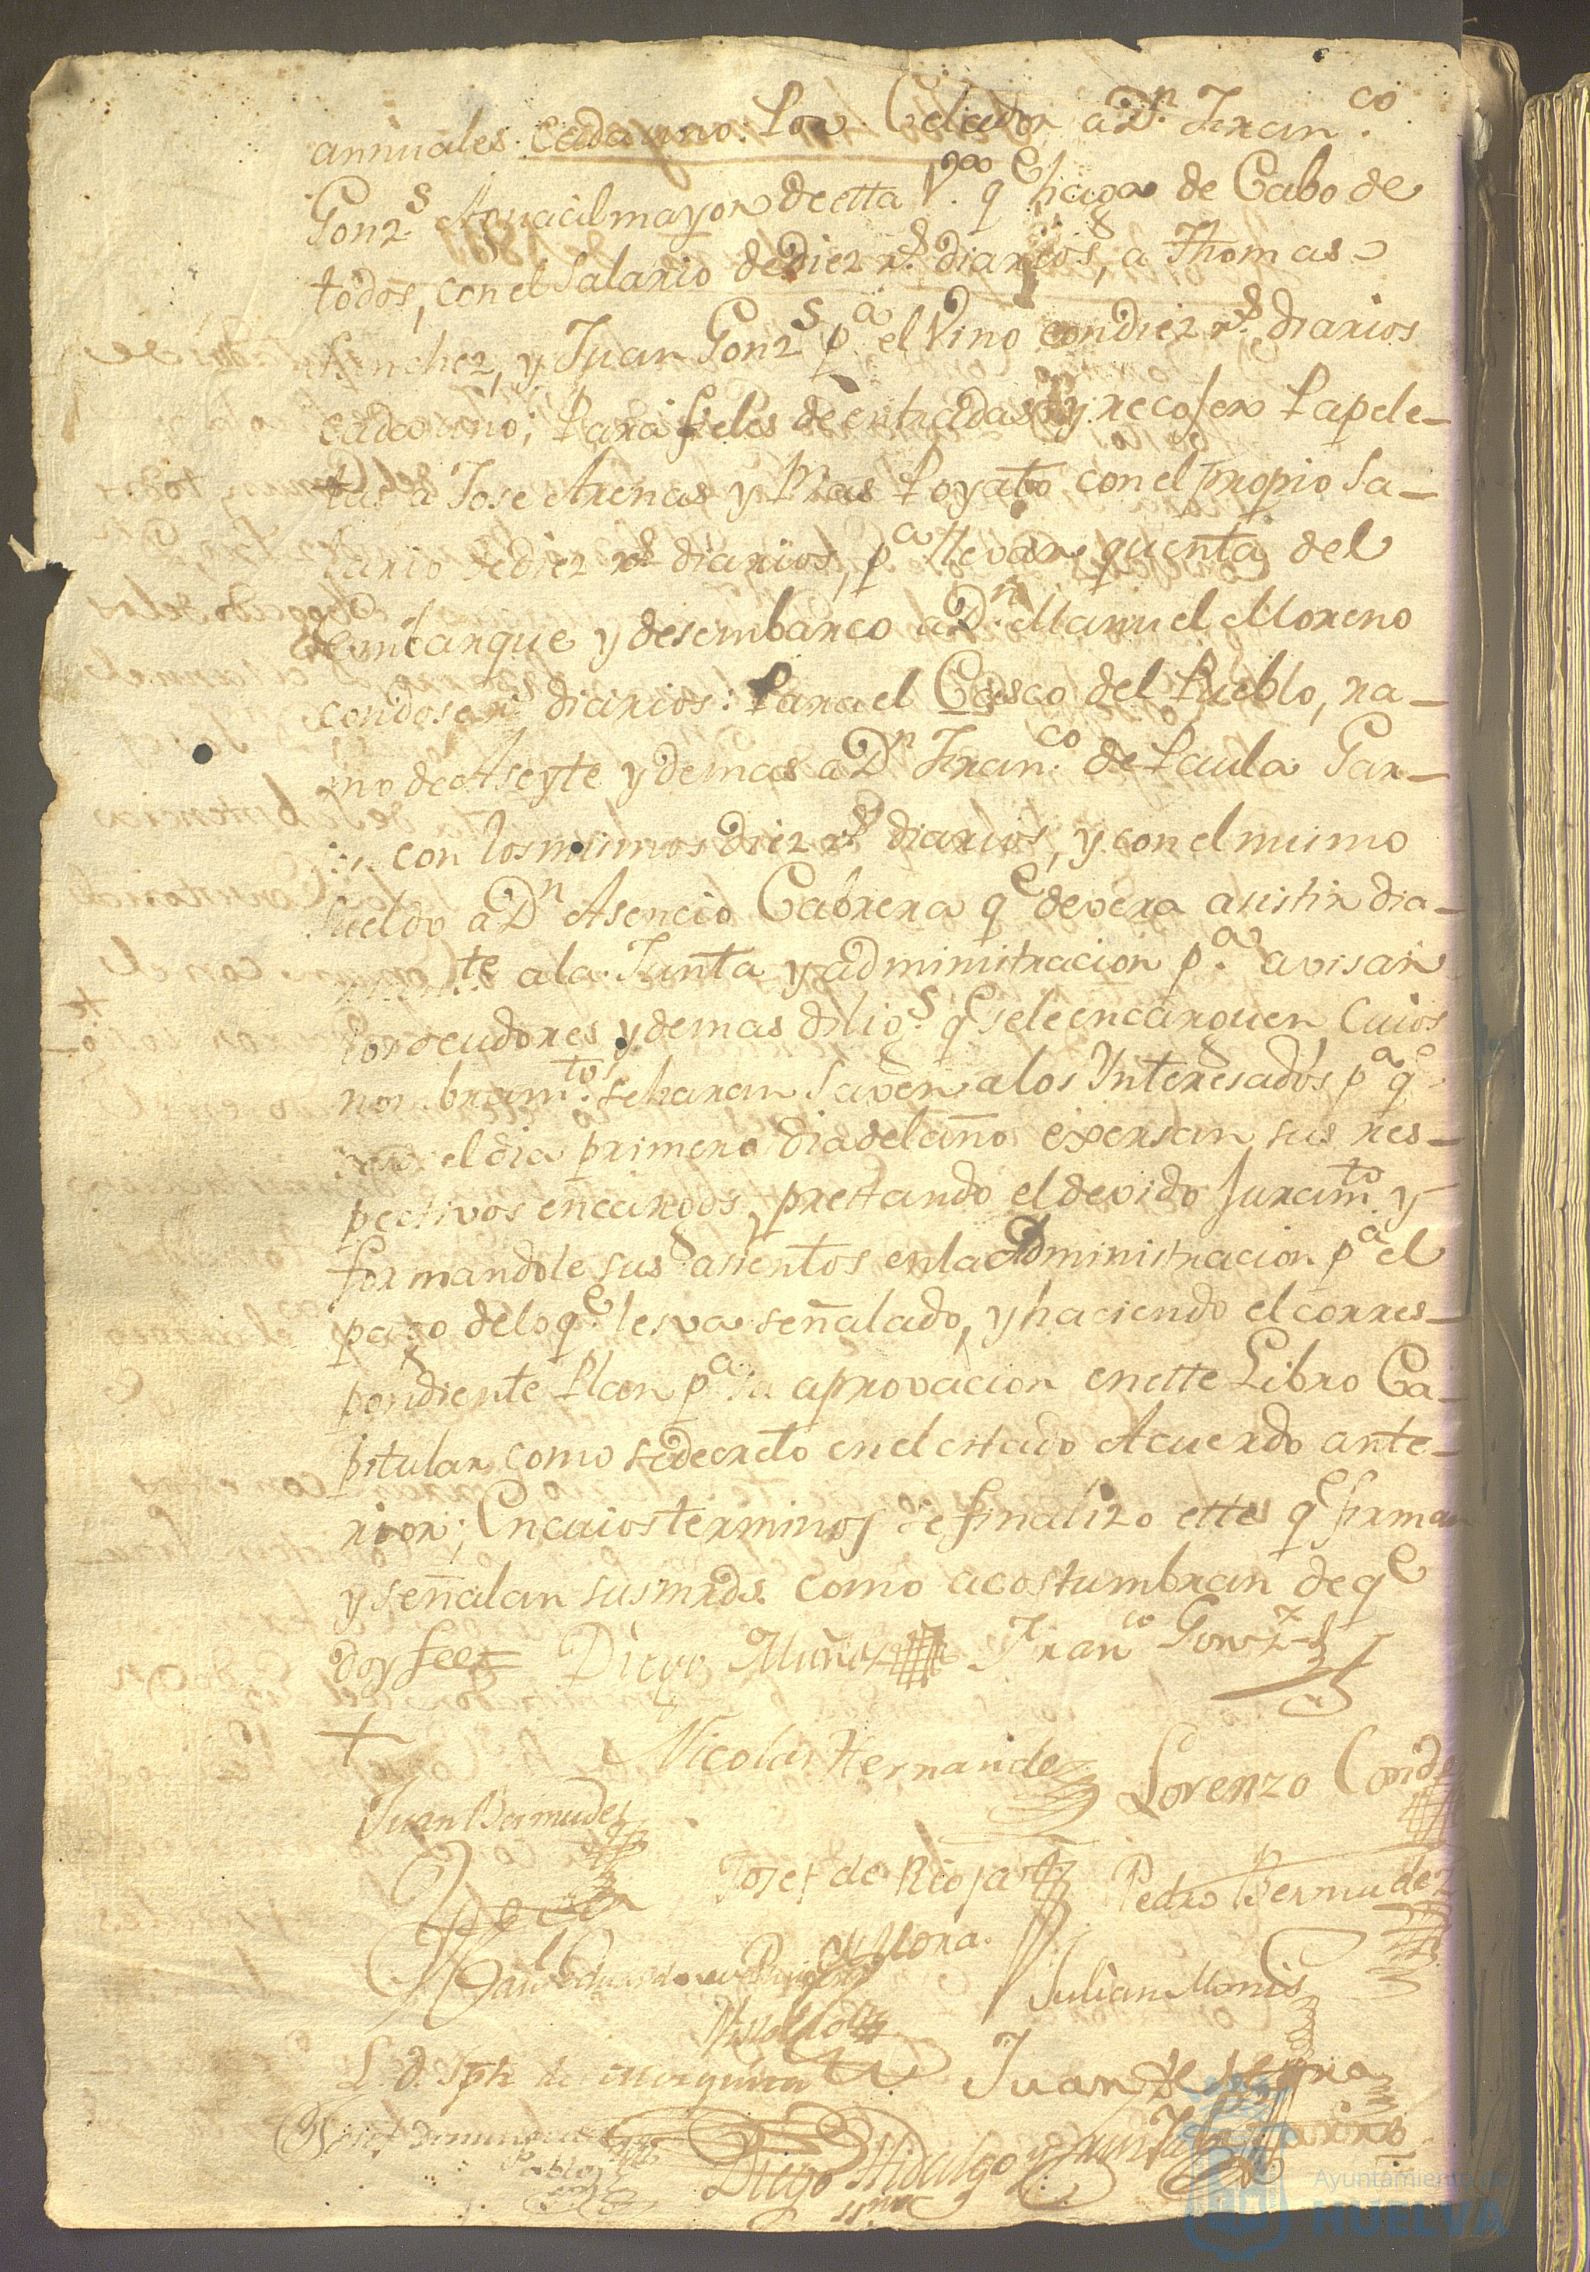 annuales cada uno: Por Celador a Dn. Franco.
Gonzs. Alguacil mayor de esta Va. qe haga de Cabo de
todos, con el Salario de diez rs. diarios, a Thomas
Sanchez, y Juan Gonzs pa. el Vino con diez rs. diarios
cada uno; Para fieles de entradas y recojer Papele-
tas a Jose Arenas y Blas Poyato con el propio Sa-
lario de diez rs diarios, pa llevar quenta del
embarque y desembarco a Dn. Manuel Moreno
con dose rs diarios: Para el Casco del Pueblo, ra-
mo de Aseyte y demas a Dn Franco. de Paula Gar-
con los mismos diez rs diarios, y con el mismo
sueldo a Dn Asencio Cabrera qe devera asistir dia-
te a la Junta y administracion pa. avisar
deudores y demas diligs. qe se le encarguen Cuios
nombramtos. se haran Saver a los Ynteresados pa qe
el dia primero dia del año exersan sus res-
pectivos encargos, prestando el devido juramto. y
formandole sus asientos en la administracion pa el
pago de lo qe. les va señalado, y haciendo el corres-
pondiente Plan pa. la aprovacion en este Libro Ca-
pitular como se decreto en el citado Acuerdo ante-
rior; En cuios terminos se finalizo este qe firman
y señalan sus mrds. como acostumbran de qe
doy fee= Diego Muñiz Franco Gonz
Nicolas Hernandez Lorenzo Conde
Juan Bermudez
Josef de Rioja Pedro Bermudez
y Mora.
Julian Monis
Juan de
Josef Dominguez
Pablos
Diego Hidalgo y
Ayuntamiento de
HUELVA